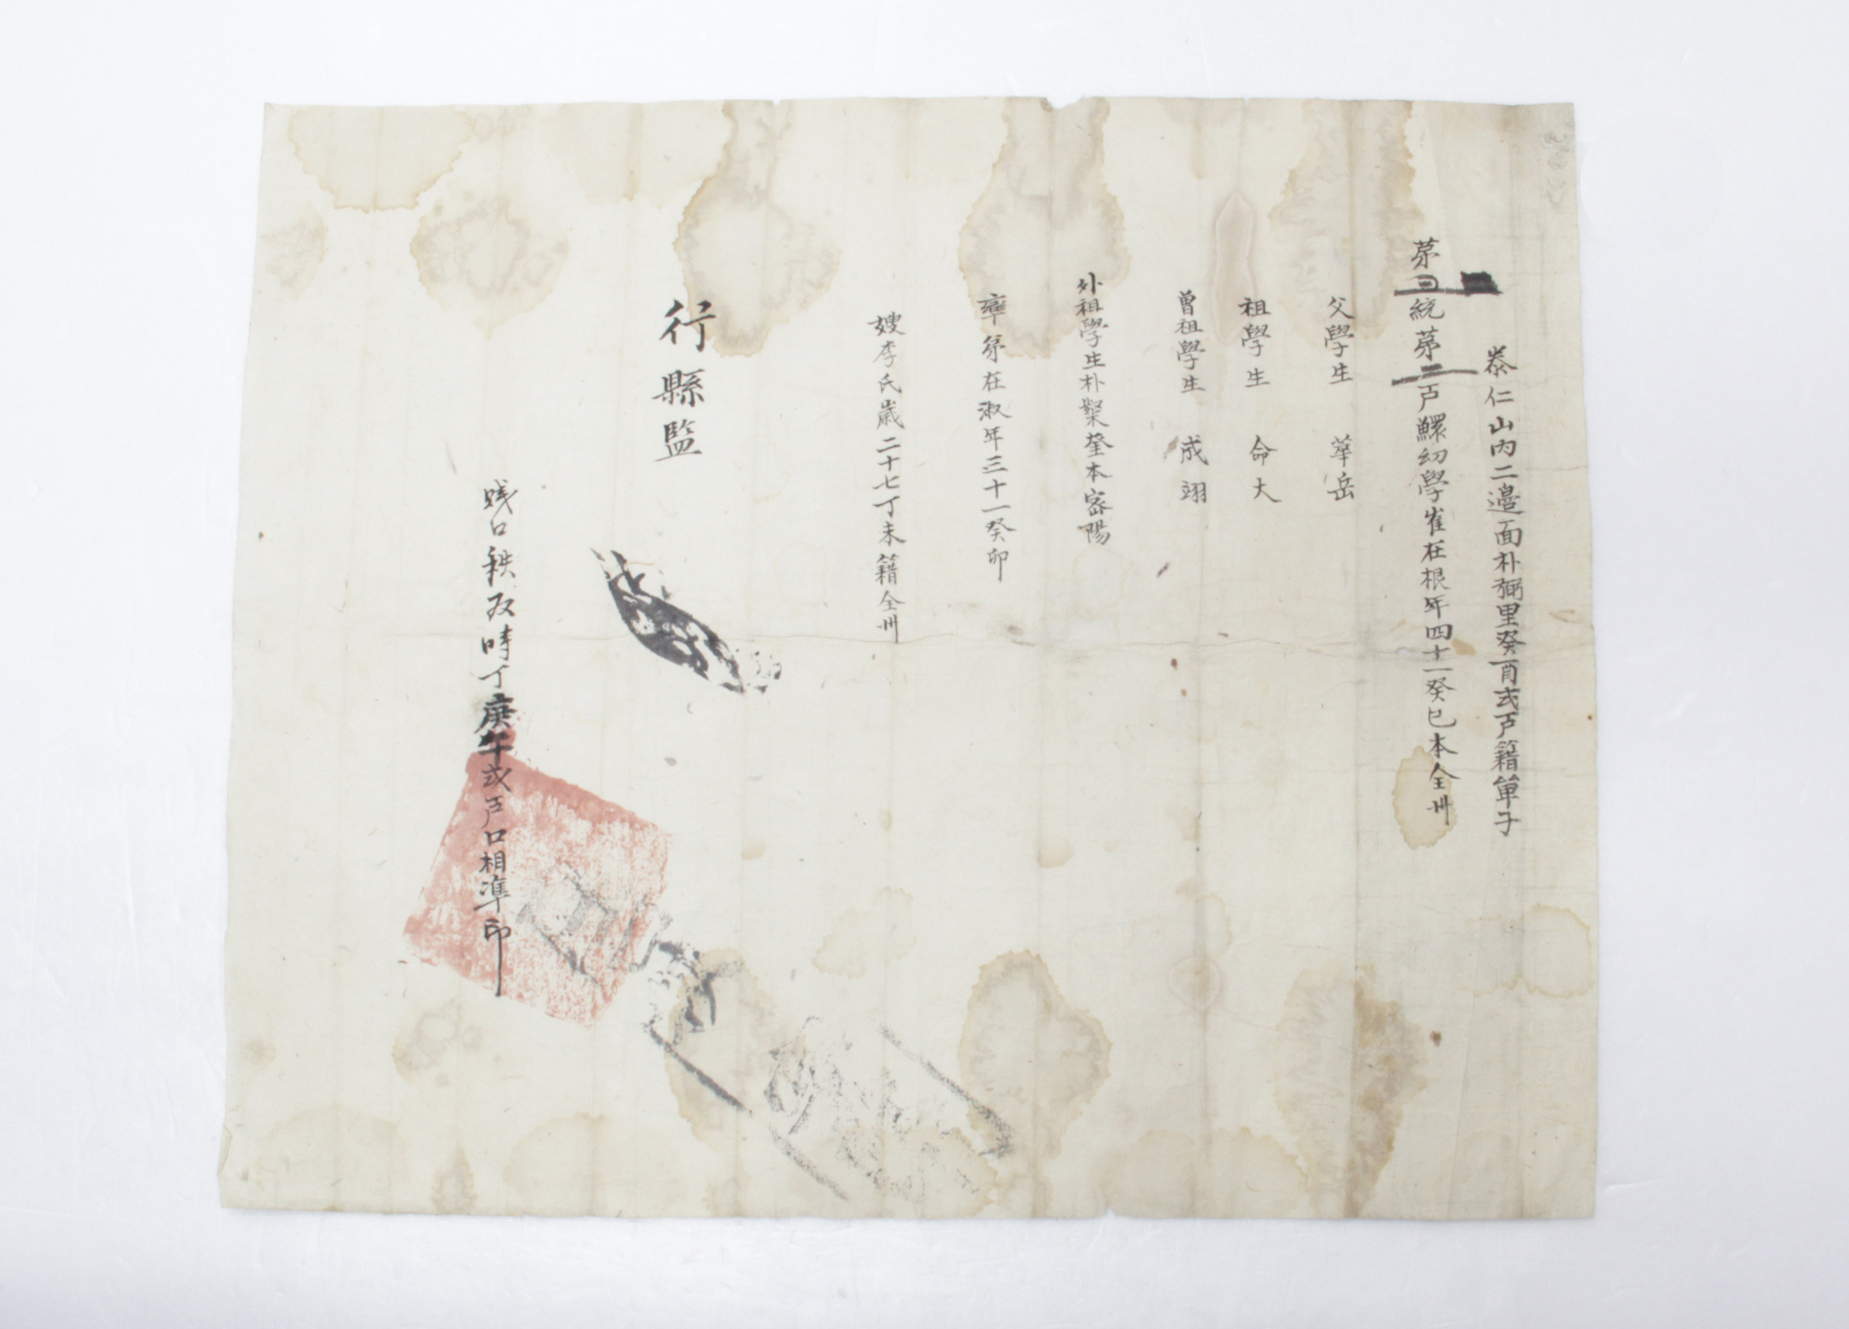 泰仁山內二邉面朴弻里癸酉式戸籍單子
苐 統苐二戸鰥幼學崔在根年四十一癸巳本全州
父學生 華岳
祖學生 命大
曾祖學生 成翊
外祖學生朴 本密陽
率弟在淑年三十一癸卯
嫂李氏歲二十七丁未籍全州
行縣監
賤口秩 時丁庚午式戸口相準印